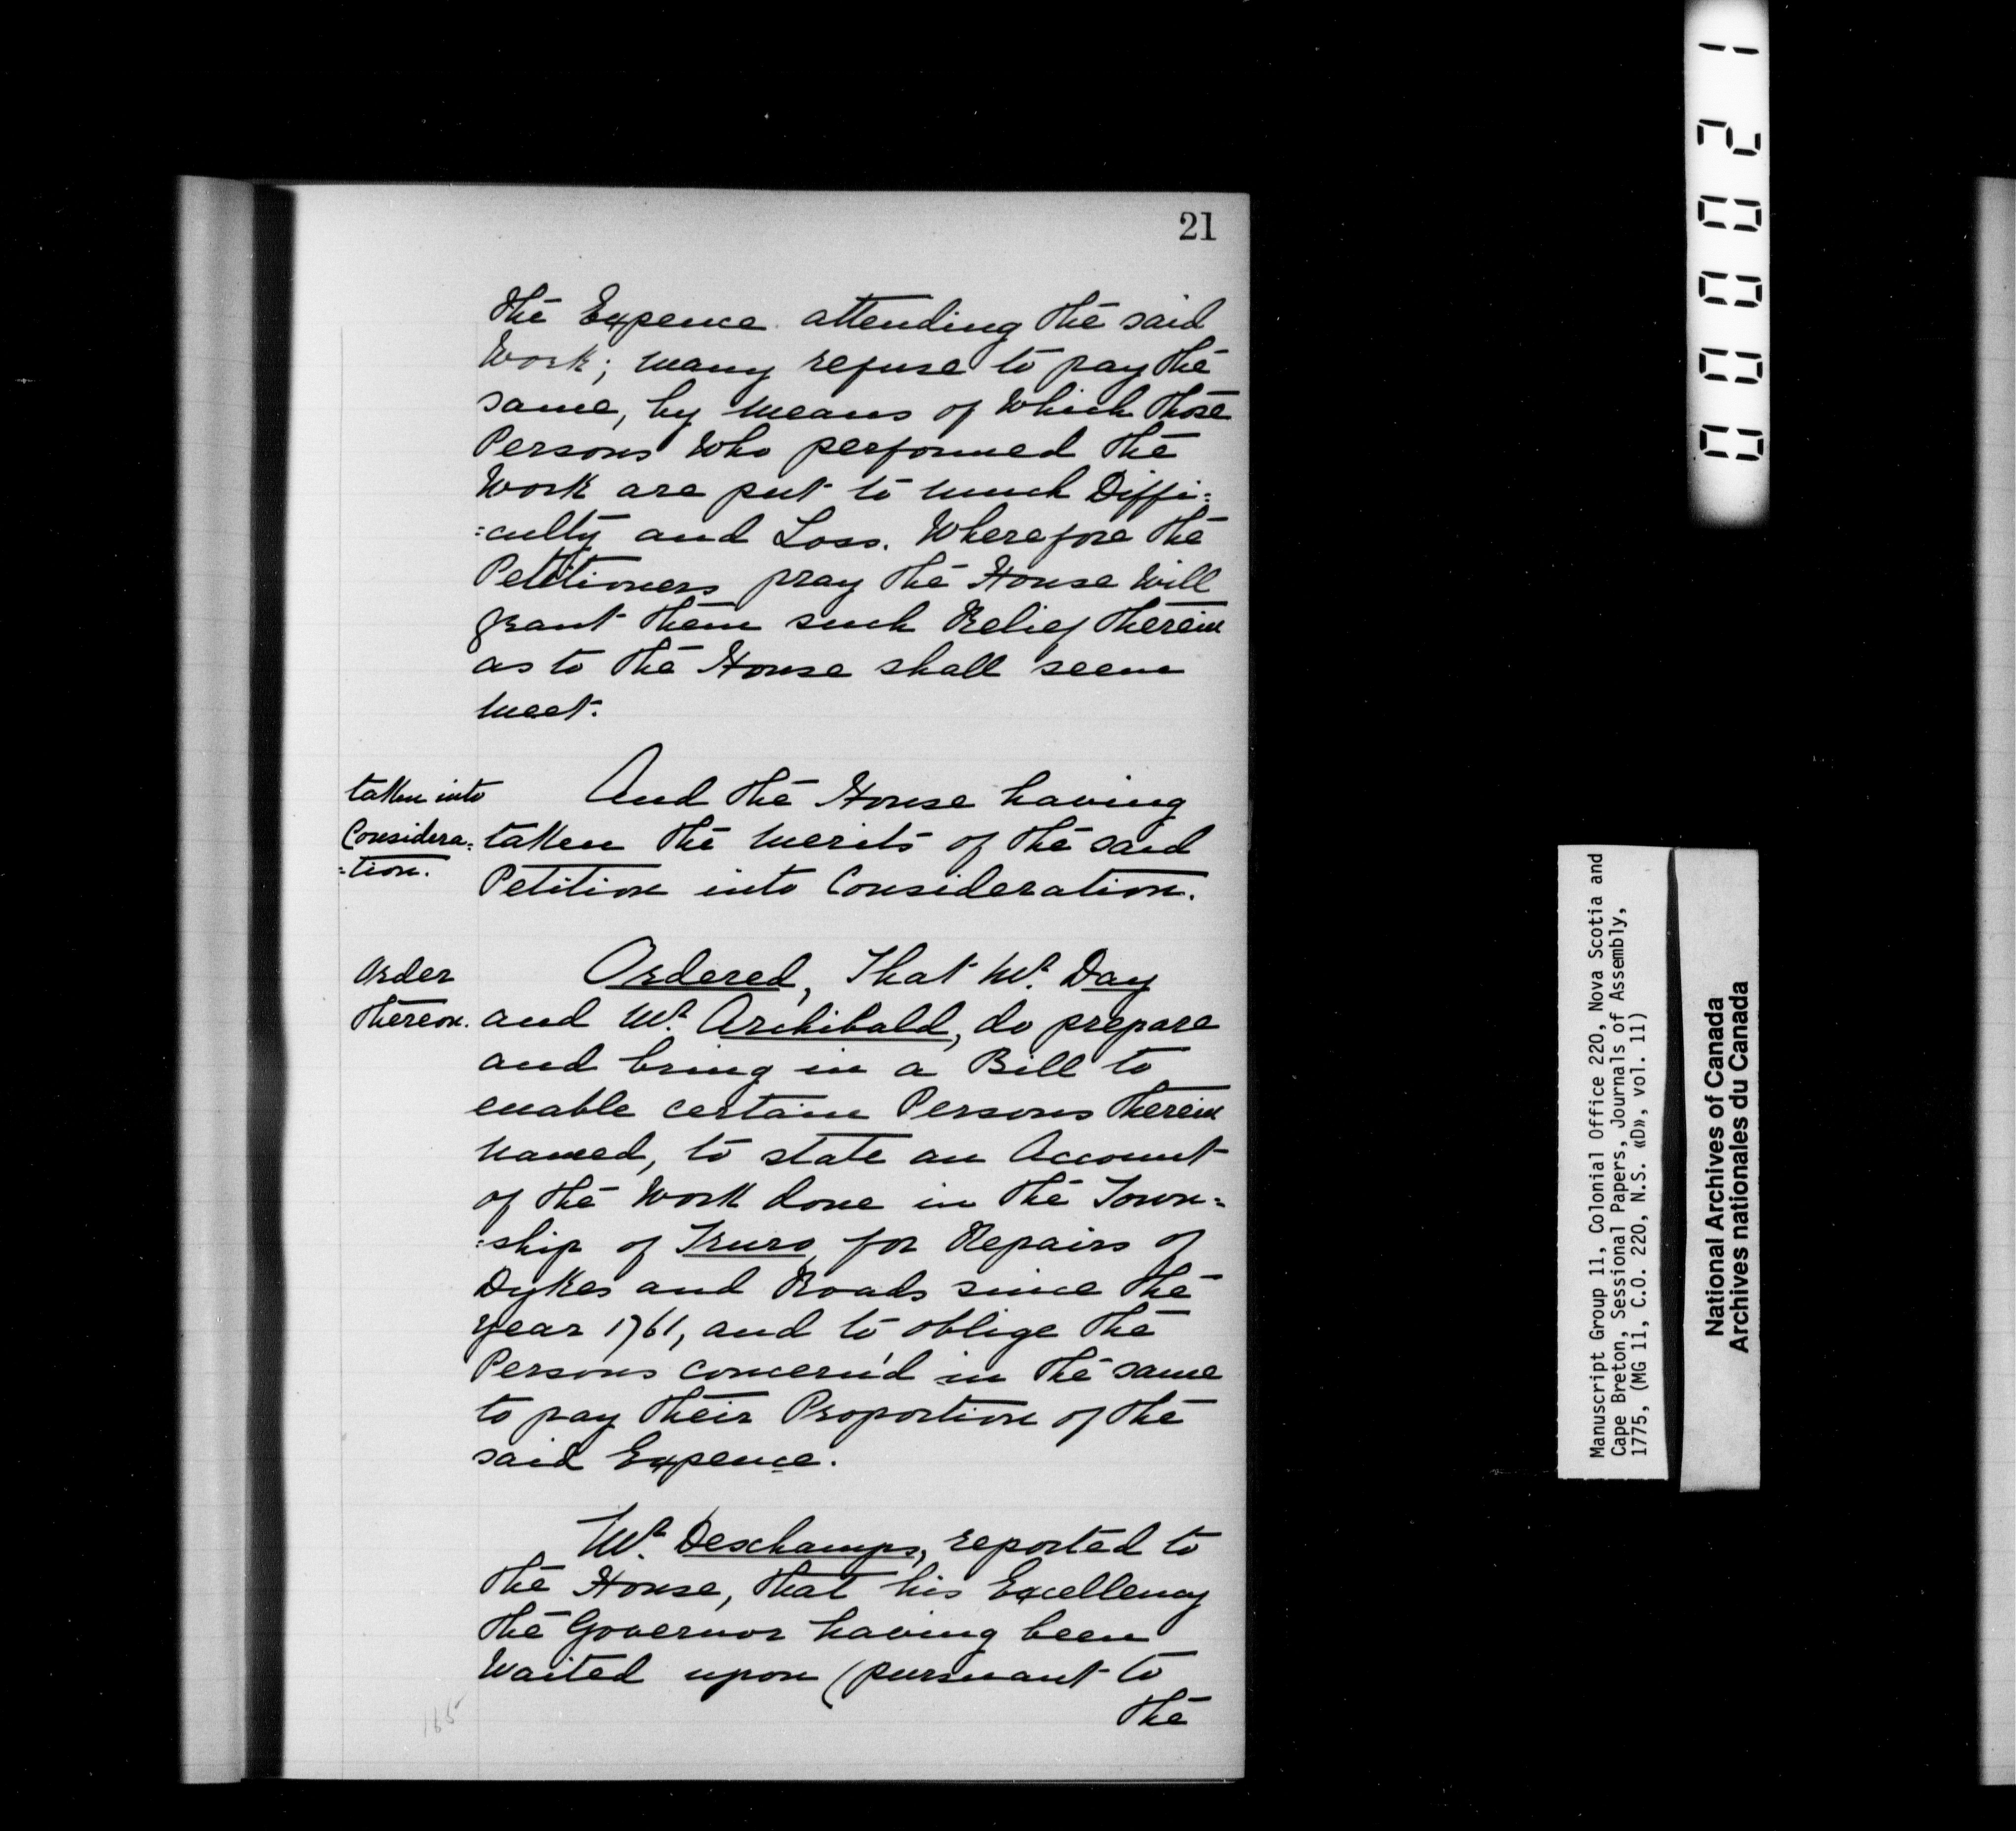 21
the Expence attending the said
Work; many refuse to pay the
same, by means of which those
Persons who performed the
Work are put to much Diffi=
=culty and Loss. Wherefore the
Petitioners pray the House will
grant them such Relief therein
as to the House shall seem
meet.
taken into
Considera=
=tion.
And the House having
taken the merits of the said
Petition into Consideration.
Order
thereon.
Ordered, That Mr. Day
and Mr. Archibald, do prepare
and bring in a Bill to
enable certain Persons therein
named, to state an Account
of the Work done in the Town=
=ship of Truro, for Repairs of
Dykes and Roads since the
year 1761, and to oblige the
Persons concern'd in the same
to pay their Proportion of the
said Expence.
Mr. Deschamps, reported to
the House, that his Excellency
the Governor having been
Waited upon (pursuant to
the
165
00021
Manuscript Group 11, Colonial Office 220, Nova Scotia and
Cape Breton, Sessional Papers, Journals of Assembly,
1775, (MG 11, C.O. 220, N.S. «D», vol. 11)
National Archives of Canada
Archives nationales du Canada